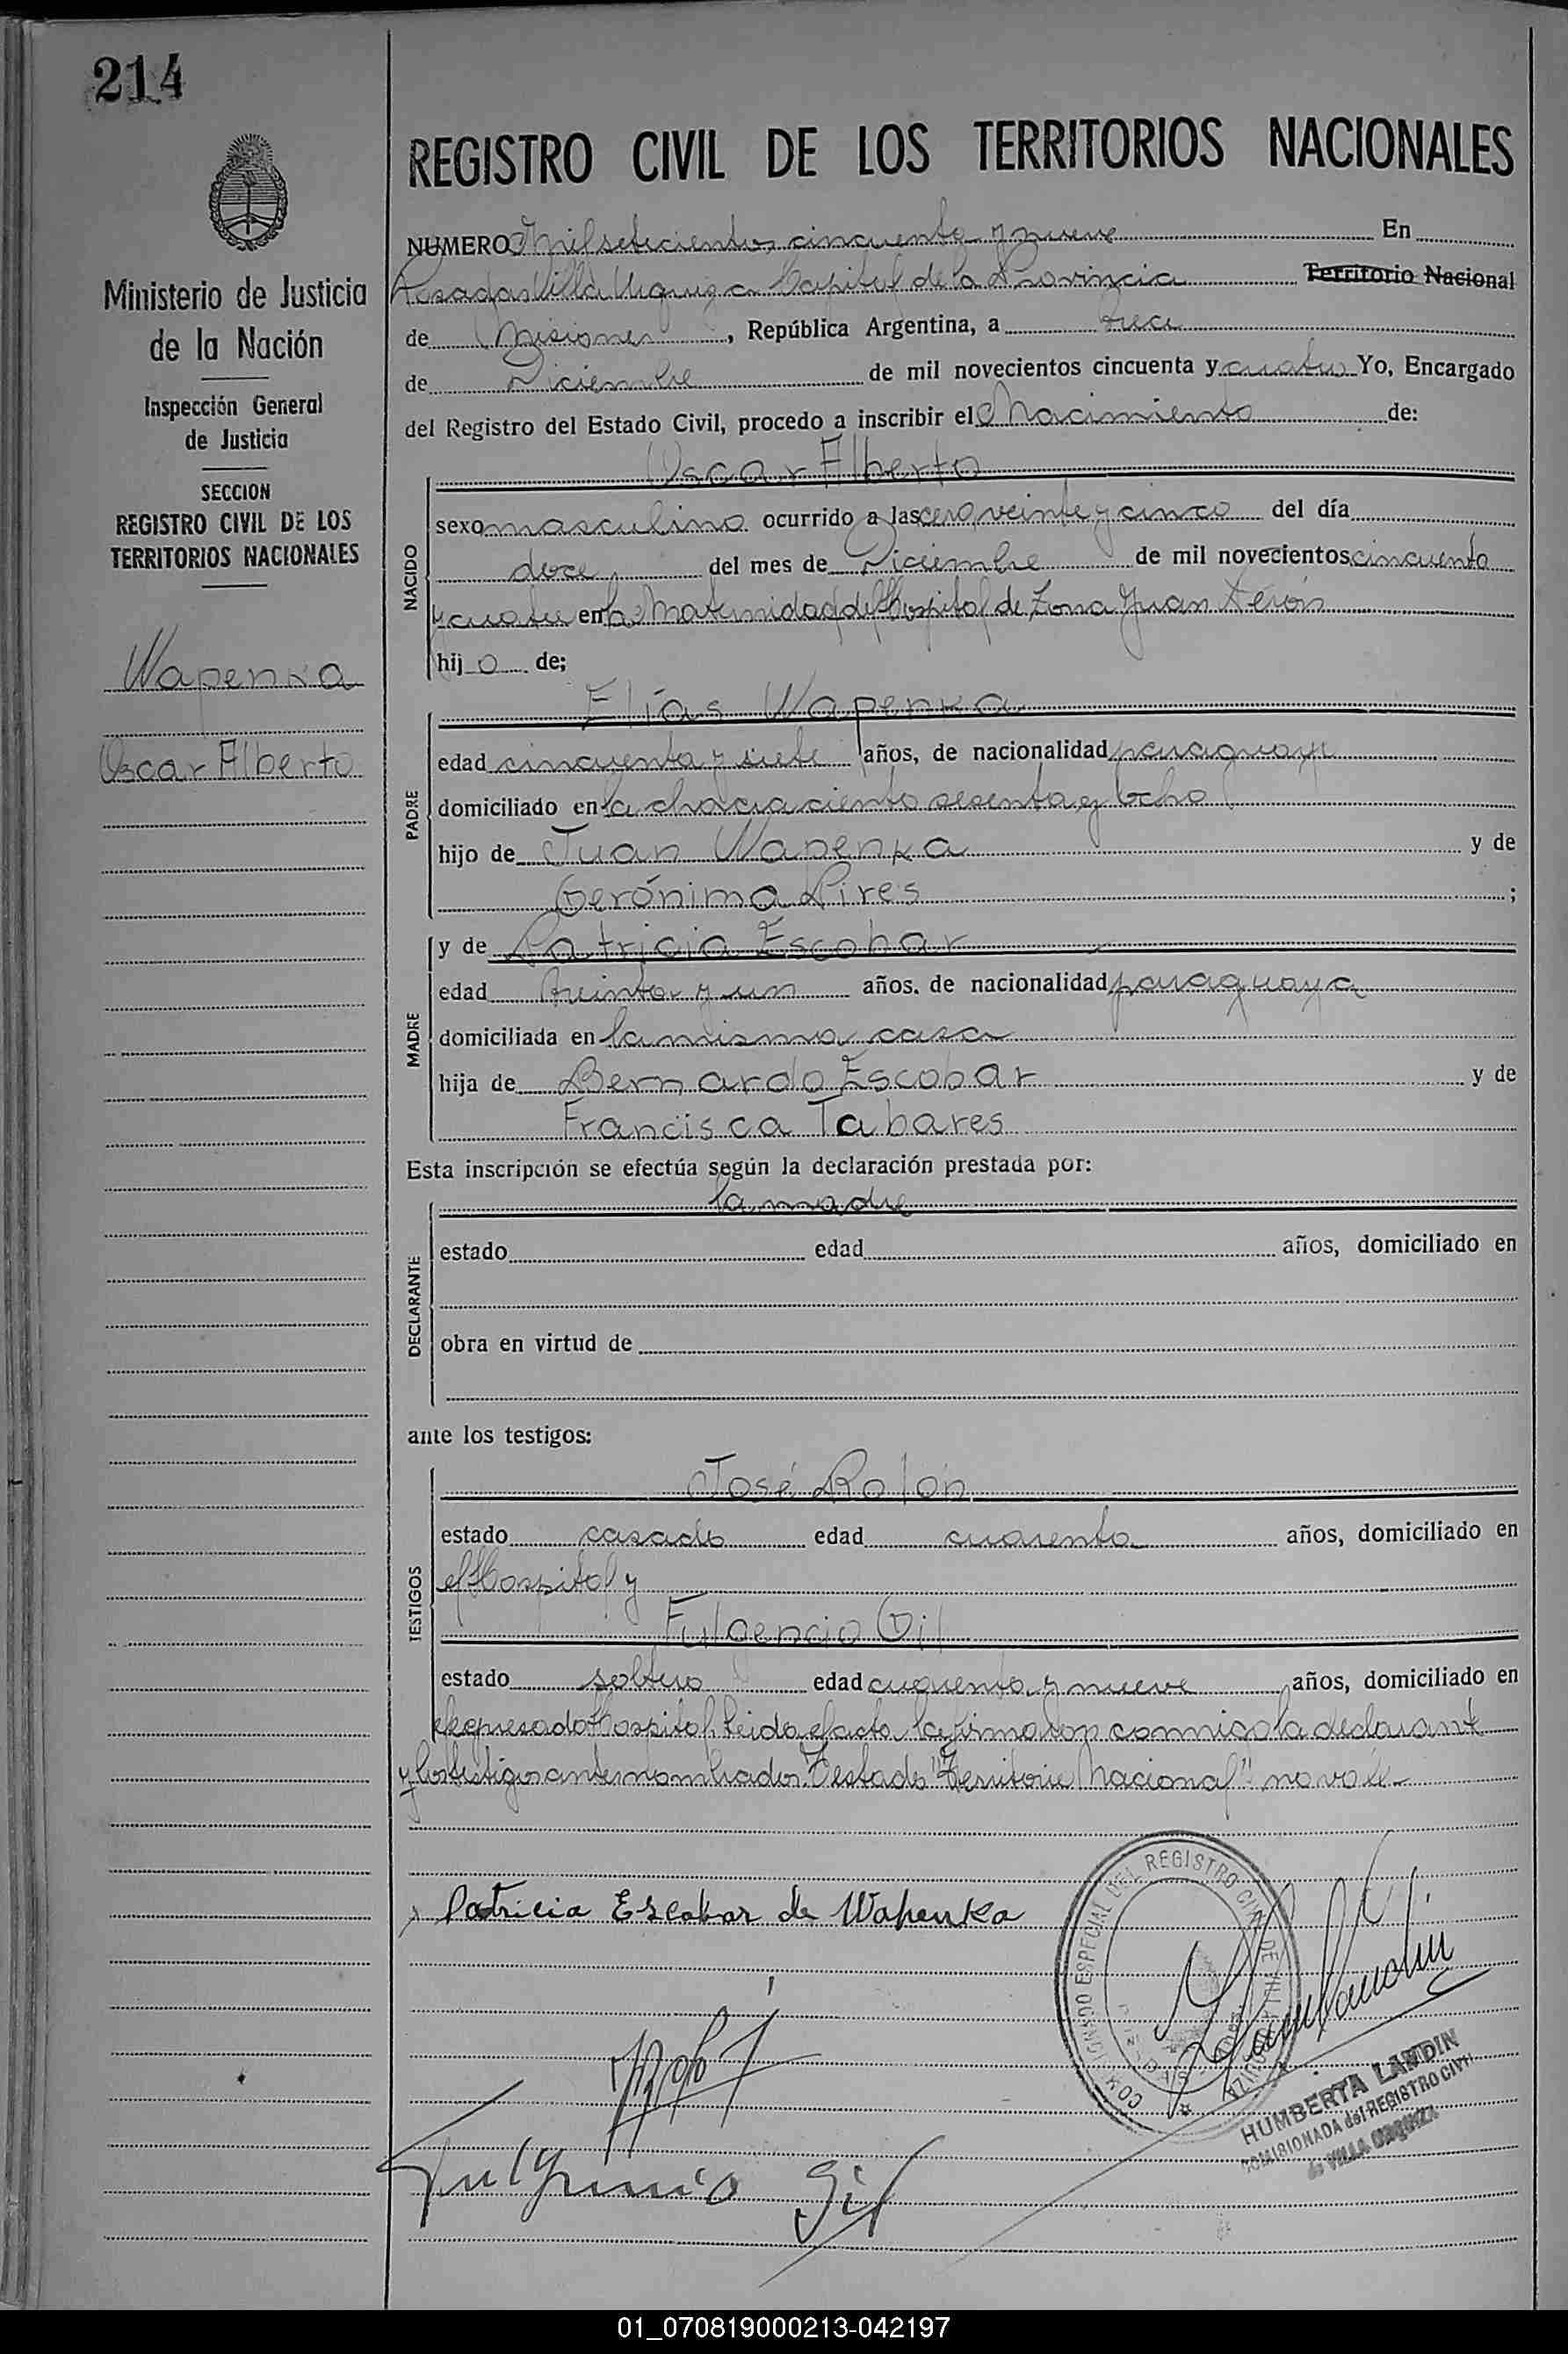 214
Ministerio de Justicia
de la Nación
Inspección General
de Justicia
SECCION
REGISTRO CIVIL DE LOS
TERRITORIOS NACIONALES
Wapenka
Oscar Alberto
REGISTRO CIVIL DE LOS TERRITORIOS NACIONALES
NUMERO Mil setecientos cincuenta y nueve En
Posadas Villa Urquiza Capital de la Provincia Territorio Nacional
de Misiones, República Argentina, a trece
de Diciembre de mil novecientos cincuenta y cuatro Yo, Encargado
del Registro del Estado Civil, procedo a inscribir el Nacimiento de:
Oscar Alberto
NACIDO
sexo masculino ocurrido a las cero, veinte y cinco del día
doce del mes de Diciembre de mil novecientos cincuenta
y cuatro en la Maternidad del Hospital de Zona Juan Perón
hijo de;
PADRE
Elías Wapenka
edad cincuenta y siete años, de nacionalidad paraguayo
domiciliado en la chacra ciento sesenta y ocho
hijo de Juan Wapenka y de
Gerónima Pires ;
MADRE
y de Patricia Escobar
edad treinta y un años. de nacionalidad paraguaya
domiciliada en la misma casa
hija de Bernardo Escobar y de
Francisca Tabares
Esta inscripción se efectúa según la declaración prestada por:
la madre
DECLARANTE
estado edad años, domiciliado en
obra en virtud de
ante los testigos:
TESTIGOS
José Rolón
estado casado edad cuarenta años, domiciliado en
el Hospital y
Fulgencio Gil
estado soltero edad cuarenta y nueve años, domiciliado en
el expresado Hospital. Leida el acta la firmaron conmigo la declarante
y los testigos antes nombrados. Testado "Territorio Nacional" no vale
Patricia Escobar de Wapenka
Fulgencio Gil
COMISIONADO ESPECIAL DEL REGISTRO CIVIL DE VILLA URQUIZA
HUMBERTA LANDIN
COMISIONADA del REGISTRO CIVIL
de VILLA URQUIZA
01_070819000213-042197